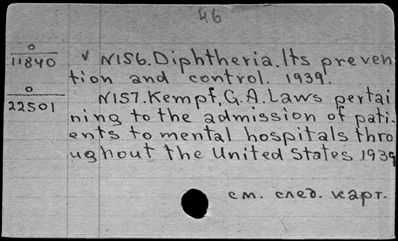 46
0
11840
v N156. Diphtheria. Its preven
tion and control. 1939.
0
22501
N157. Kempf, G.A. Laws pertai
ning to the admission of pati-
ents to mental hospitals thro
ughout the United States 1939
см. след. карт.